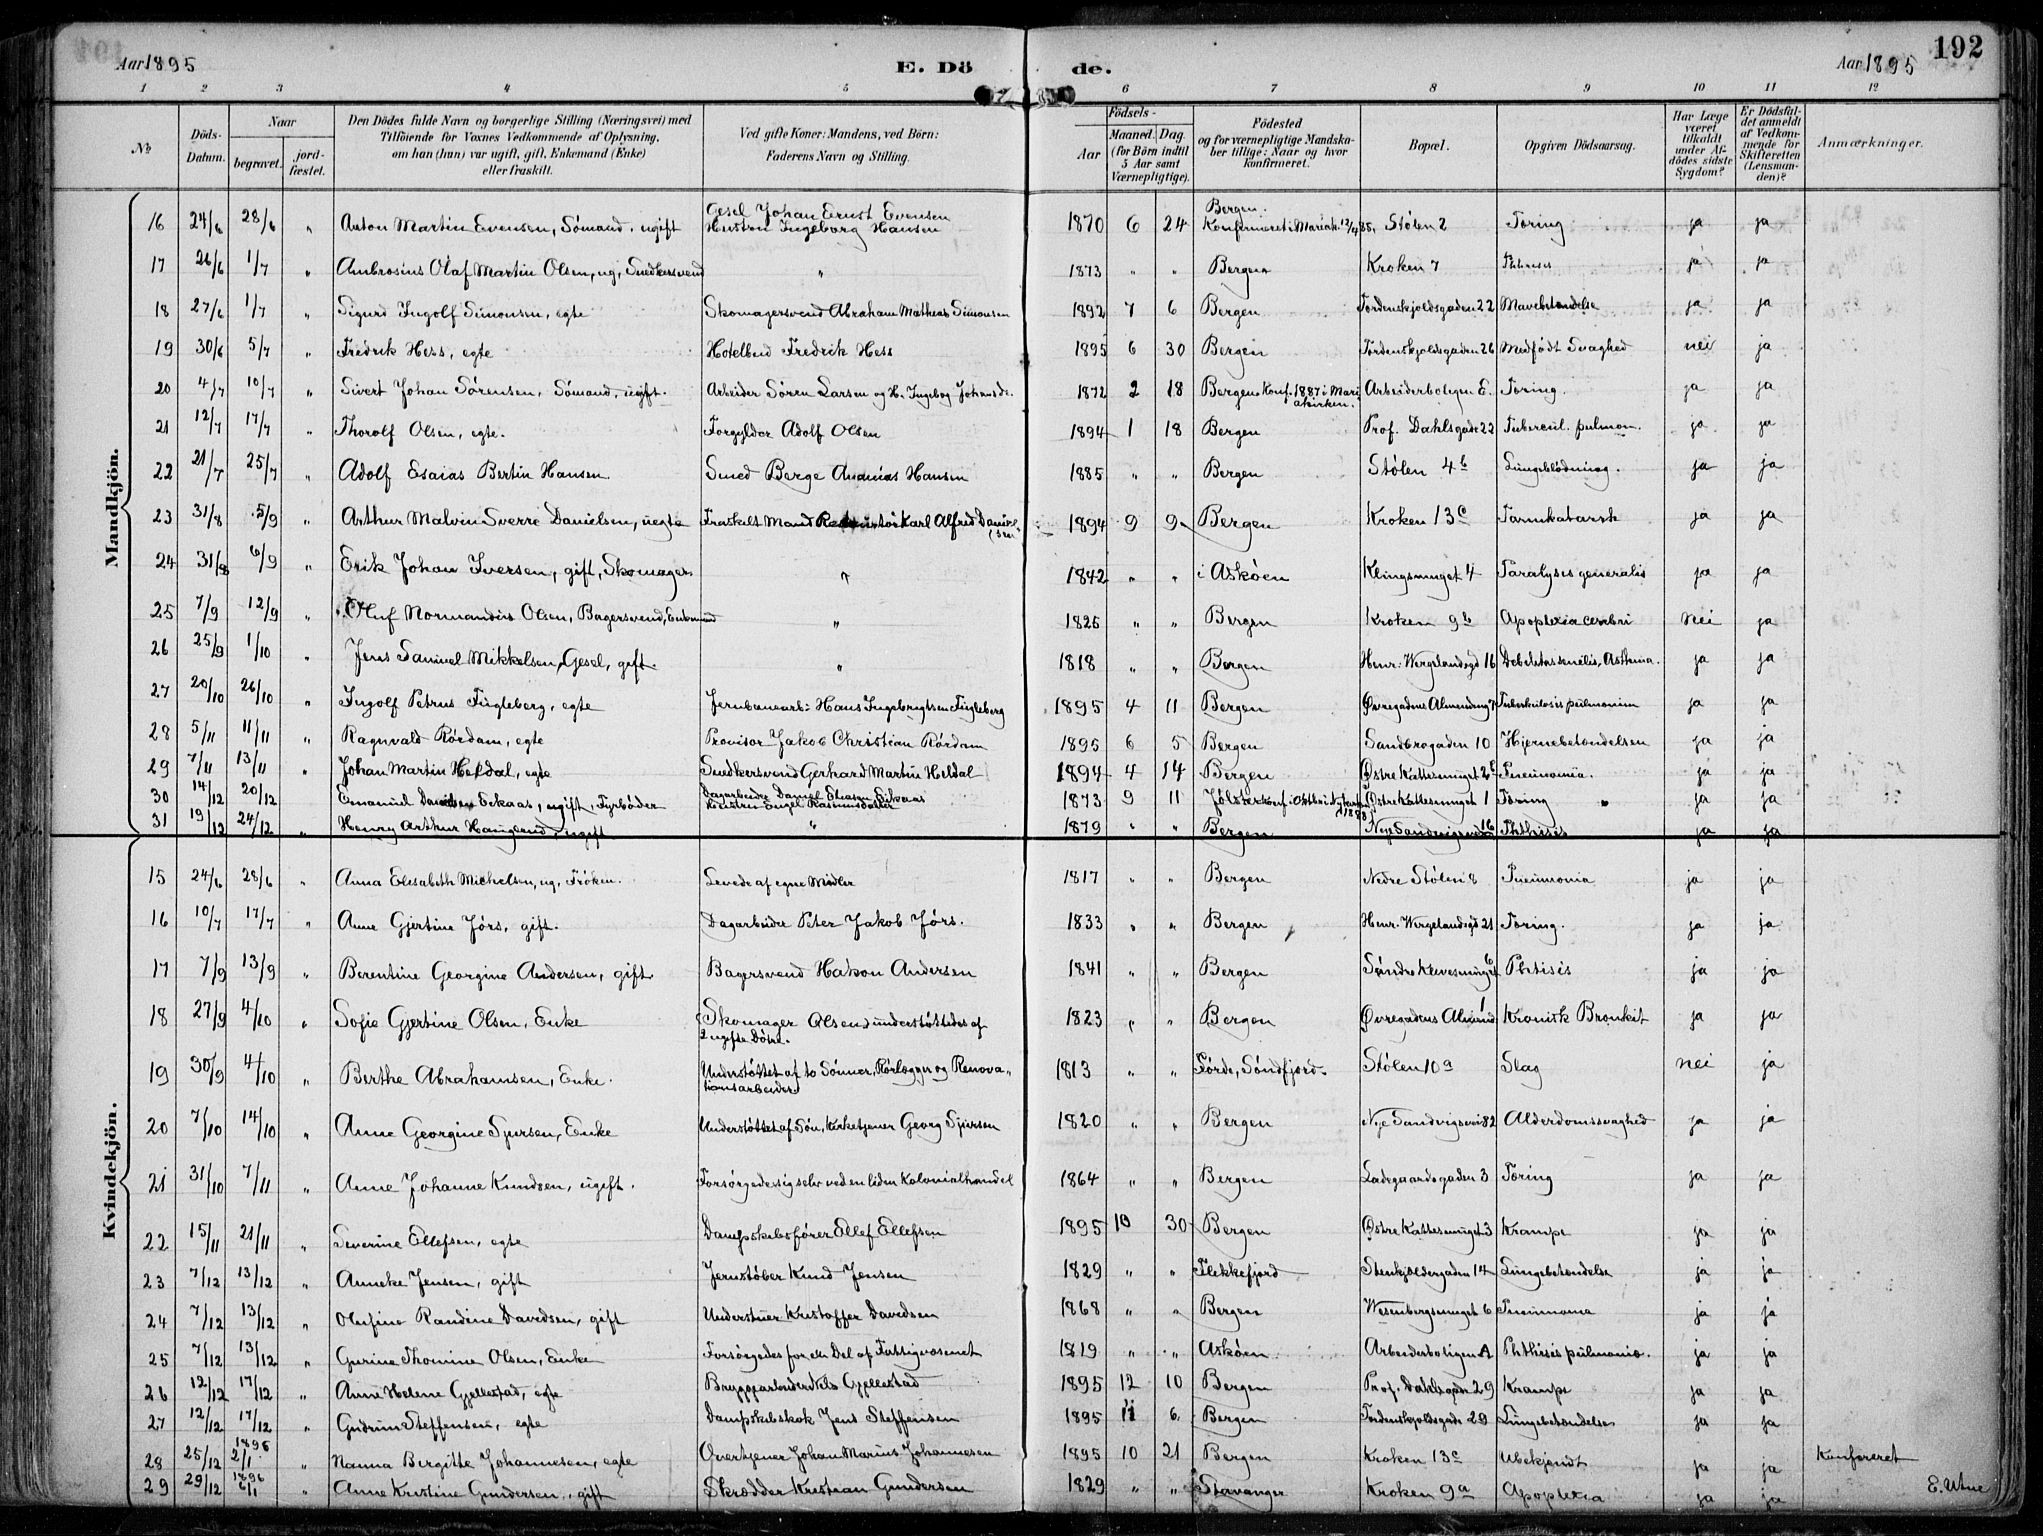 Aar 1895
E. Dö
de.
Aar 1895
192
1 2 3 4 5 6 7 8 9 10 11 12
No
Döds-Datum.
Naar
begravet.
jord-fæstet.
Den Dödes fulde Navn og borgerlige Stilling (Næringsvei) med
Tilföiende for Voxnes Vedkommende af Oplysning,
om han (hun) var ugift, gift, Enkemand (Enke)
eller fraskilt.
Ved gifte Koner: Mandens, ved Börn:
Faderens Navn og Stilling.
Födsels-
Aar
Maaned. Dag.
(for Börn indtil
5 Aar samt
Værnepligtige).
Födested
og for værnepligtige Mandska-
ber tillige: Naar og hvor
konfirmeret.
Bopæl.
Opgiven Dödsaarsag.
Har Læge
været
tilkaldt
under Af-
dödes sidste
Sygdom?
Er Dödsfal-
det anmeldt
af Vedkom-
mende for
Skifteretten
(Lensman-
den)?
Anmærkninger.
Mandkjön.
16 24/6 28/6 " Anton Martin Evensen, Sømand, ugift Gesel Johan Ernst Evensen Hustru Ingeborg Hansen 1870 6 24 Bergen. Konfirmeret i Mariak. 12/4 85, Stølen 2 Tæring ja ja
17 26/6 1/7 " Ambrosius Olaf Martin Olsen, ug, Snedkersvend " 1873 " " Bergen Kroken 7 Phthisis ja ja
18 27/6 1/7 " Sigurd Ingolf Simonsen, egte Skomagersvend Abraham Mathias Simonsen 1892 7 6 Bergen Tordenskjoldsgaden 22 Mavebetændelse ja ja
19 30/6 5/7 " Fredrik Hess, egte Hotelbud Fredrik Hess 1895 6 30 Bergen Tordenskjoldsgaden 26 Medfødt Svaghed nei ja
20 4/7 10/7 " Sivert Johan Sørensen, Sømand, ugift. Arbeider Søren Larsen og H. Ingebog Johansdr. 1872 2 18 Bergen Konf. 1887 i Mariakirken. Arbeiderboligen E. Tæring. ja ja
21 12/7 17/7 " Thorolf Olsen, egte. Forgylder Adolf Olsen 1894 1 18 Bergen Prof. Dahlsgade 22 Tubercul. pulmon. ja ja
22 21/7 25/7 " Adolf Esaias Bertin Hansen Smed Berge Ananias Hansen 1885 " " Bergen Stølen 4b Lungeblödning. ja ja
23 31/8 5/9 " Arthur Malvin Sverre Danielsen, uegte Fraskilt Mand Karl Alfred Danielsen 1894 9 9 Bergen Kroken 13c Tarmkatarrh ja ja
24 31/8 6/9 " Erik Johan Iversen, gift, Skomager " 1842 " " i Askøen Klingsmuget 4 Paralysis generalis ja ja
25 7/9 12/9 " Oluf Normandius Olsen, Bagersvend, Enkemand " 1825 " " Bergen Kroken 9b Apoplexia cerebri nei ja
26 25/9 1/10 " Jens Samuel Mikkelsen, Gesel, gift. " 1818 " " Bergen Henr: Wergelandsgd 16 Debilitas senilis, Asthma. ja ja
27 20/10 26/10 " Ingolf Petrus Fugleberg, egte Jernbanearb: Hans Ingebrigtsen Fugleberg 1895 4 11 Bergen Øvregadens Almending 7 Tuberkulosis pulmonum ja ja
28 5/11 11/11 " Ragnvald Rördam, egte Provisor Jakob Christian Rördam 1895 6 5 Bergen Sandbrogaden 10 Hjernebetændelsen ja ja
29 7/11 13/11 " Johan Martin Heldal, egte Snedkersvend Gerhard Martin Heldal 1894 4 14 Bergen Østre Kattesmuget 2b Pneumonia ja ja
30 14/12 20/12 " Emanuel Eckaas, ugift, Fyrbøder Dagarbeider Daniel Eliasen Eikaas Hustru Engel Rasmusdatter 1873 9 11 Jølster Østre Kattesmuget 1 Tæring ja ja
31 19/12 24/12 " Henry Arthur Haugerud, ugift " 1879 " " Bergen Nye Sandvigsvei 16 Phthisis ja ja
Kvindekjön.
15 24/6 28/6 " Anna Elisabeth Michelsen, ug, Frøken. Levede af egne Midler 1817 " " Bergen Nedre Stølen 8 Pneumonia ja ja
16 10/7 17/7 " Anne Gjertine Jörs, gift. Dagarbeider Peter Jakob Jörs. 1833 " " Bergen Henr. Wergelandsgd 21 Tæring. ja ja
17 7/9 13/9 " Berentine Georgine Andersen, gift Bagersvend Hakon Andersen 1841 " " Bergen Søndre Kleivesmuget 6 Phtisis ja ja
18 27/9 4/10 " Sofie Gjertine Olsen, Enke (Skomager Olsen) understøttedes af 2 ugifte Døtre. 1823 " " Bergen Øvregadens Almend. 1 Kronisk Bronkit ja ja
19 30/9 4/10 " Berthe Abrahamsen, Enke. Understøttet af to Sønner, Rørlægger og Renovationsarbeider 1813 " " Førde, Söndfjord. Stølen 10a Slag nei ja
20 7/10 14/10 " Anne Georgine Sjursen, Enke Understøttet af Søn, Kirketjener Georg Sjursen 1820 " " Bergen Nye Sandvigsvei 82 Alderdomssvaghed ja ja
21 31/10 7/11 " Anne Johanne Knudsen, ugift. Forsørgede sig selv ved en liden Kolonialhandel 1864 " " Bergen Ladegaardsgaden 3 Tæring ja ja
22 15/11 21/11 " Severine Ellefsen, egte Dampskibsfører Ellef Ellefsen 1895 10 30 Bergen Østre Kattesmuget 3 Krampe ja ja
23 7/12 13/12 " Anneke Jensen, gift Jernstøber Knud Jensen 1829 " " Flekkefjord Stenkjældergaden 14 Lungebetændelse ja ja
24 7/12 13/12 " Olufine Randine Davidsen, gift Understuer Kristoffer Davidsen 1868 " " Bergen Wesenbergsmuget 6 Pneumonia ja ja
25 7/12 13/12 " Gurine Thomine Olsen, Enke Forsørgedes for en Del af Fattigvæsenet 1819 " " Askøen Arbeiderboligen A Phthisis pulmonia. ja ja
26 12/12 17/12 " Anne Helene Gjellestad, egte Bryggearbeider Nels Gjellestad 1895 12 10 Bergen Prof. Dahlsgade 29 Krampe ja ja
27 12/12 17/12 " Gudrun Steffensen, egte Dampskibskok Jens Steffensen 1895 11 6 Bergen Tordenskjoldsgade 29 Lungebetændelse ja ja
28 25/12 1896 2/1 " Nanna Birgitte Johannesen, egte Overtjener Johan Marius Johannesen 1895 10 21 Bergen Kroken 13c Ubekjendt ja ja Konfereret
29 29/12 1896 6/1 " Anne Kristine Gundersen, gift Skrædder Kristian Gundersen 1829 " " Stavanger Kroken 9a Apoplexia ja ja E. Utne